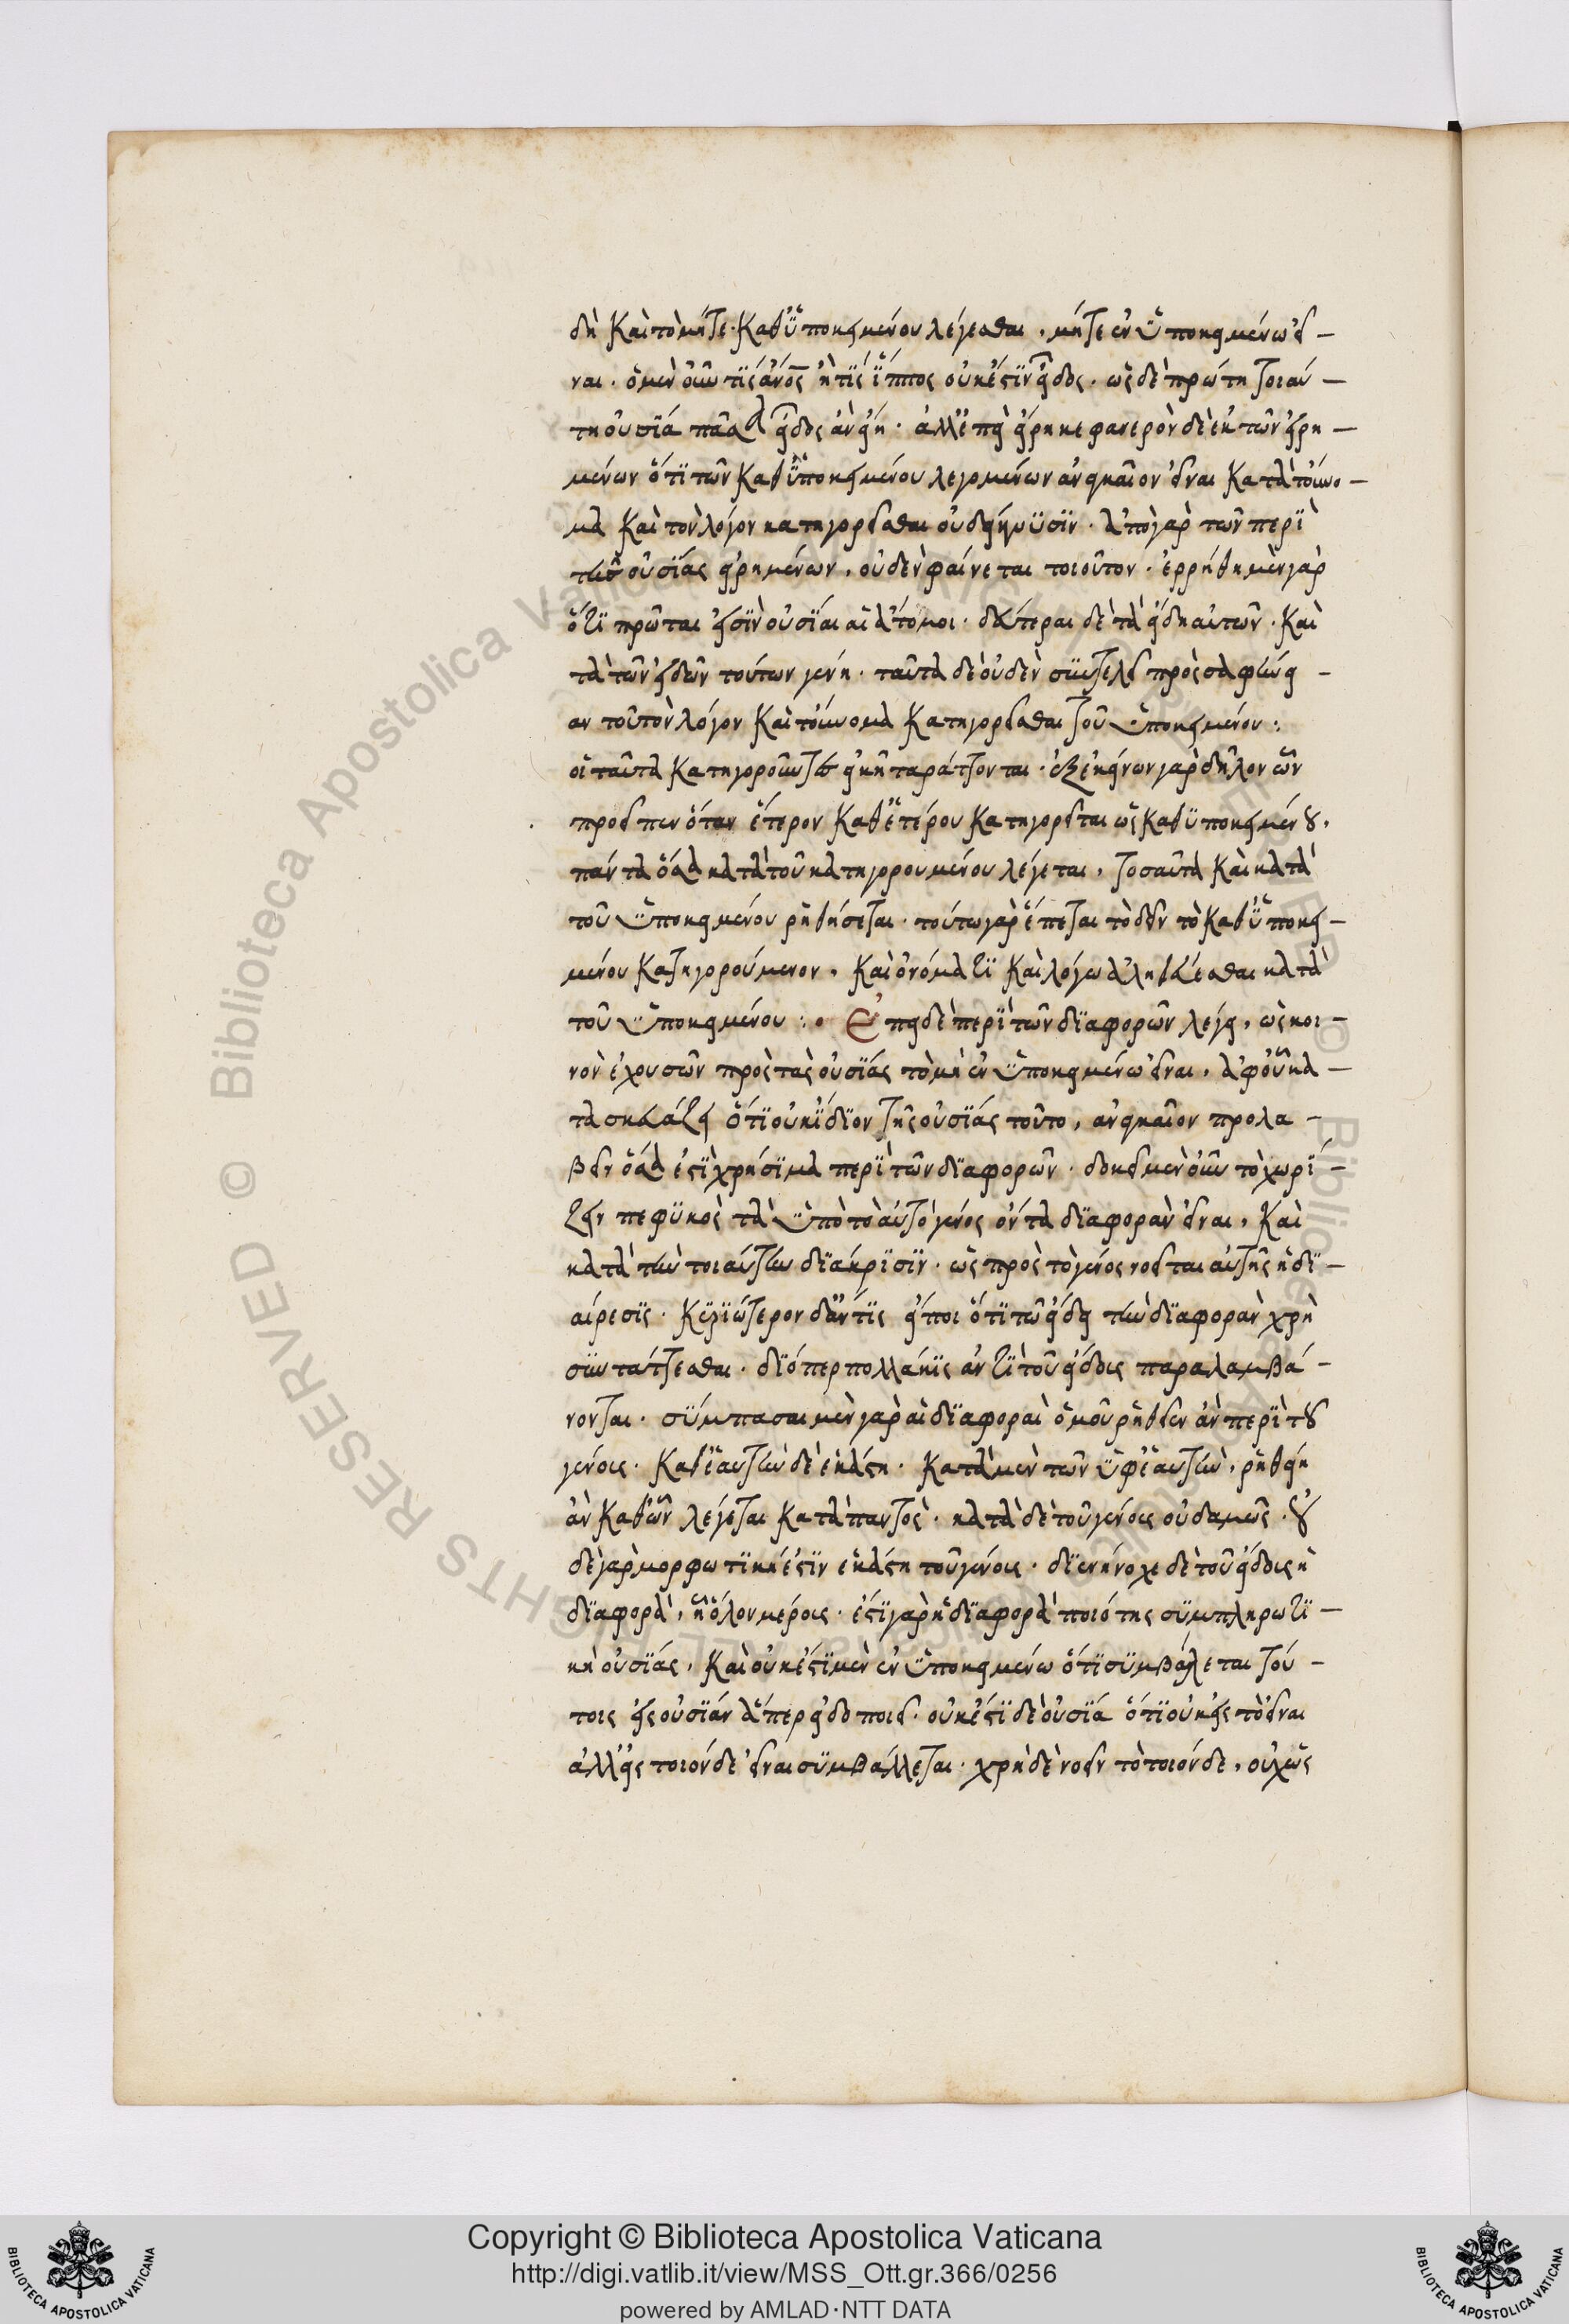 δὴ καὶ τὸ μήτε καθ' ὑποκειμένου λέγεσθαι, μήτε ἐν ὑποκειμένω εἶ-
ναι. ὁ μὲν οὖν τὶς ἄνος ἢ τὶς ἵππος οὐκ ἔστιν εἶδος. ὡς δὲ πρώτη τοιαύ-
τη οὐσία πᾶσα εἶδος ἂν εἴη. ἀλλ' ἐπεὶ εἴρηκε φανερὸν δὲ ἐκ τῶν εἰρη-
μένων ὅτι τῶν καθ' ὑποκειμένου λεγομένων ἀναγκαῖον εἶναι κατὰ τοὔνο-
μα καὶ τὸν λόγον κατηγορεῖσθαι . ἀπὸ γὰρ τῶν περὶ
τῆς οὐσίας εἰρημένων, οὐδὲν φαίνεται τοιοῦτον. ἐρρήθη μὲν γὰρ
ὅτι πρῶται εἰσὶν οὐσίαι αἱ ἄτομοι. δεύτεραι δὲ τὰ εἴδη αὐτῶν. καὶ
τὰ τῶν εἰδῶν τούτων γένη. ταῦτα δὲ οὐδὲν συντελεῖ πρὸς σαφήνει-
αν τοῦ τὸν λόγον καὶ τοὔνομα κατηγορεῖσθαι τοῦ ὑποκειμένου:
οἱ ταῦτα κατηγοροῦντες εἰκῆ ταράττονται. ἐξ ἐκείνων γὰρ δῆλον ὧν
προεῖπεν ὅταν ἕτερον καθ' ἑτέρου κατηγορεῖται ὡς καθ' ὑποκειμένου,
πάντα ὅσα κατὰ τοῦ κατηγορουμένου λέγεται, τοσαῦτα καὶ κατὰ
τοῦ ὑποκειμένου ῥηθήσεται. τούτω γὰρ ἕπεται τὸ δεῖν τὸ καθ' ὑποκει-
μένου κατηγορούμενον, καὶ ὀνόματι καὶ λόγω ἀληθεύεσθαι κατὰ
τοῦ ὑποκειμένου :. Ἐπεὶ δὲ περὶ τῶν διαφορῶν λέγει, ὡς κοι-
νὸν ἐχουσῶν πρὸς τὰς οὐσίας τὸ μὴ ἐν ὑποκειμένω εἶναι, ἀφ' οὗ κα-
τασκευάζει ὅτι οὐκ ἴδιον τῆς οὐσίας τοῦτο, ἀναγκαῖον προλα-
βεῖν ὅσα ἐστὶ χρήσιμα περὶ τῶν διαφορῶν. δοκεῖ μὲν οὖν τὸ χωρί-
ζειν πεφυκὸς τὰ ὑπὸ τὸ αὐτὸ γένος ὄντα διαφορὰν εἶναι, καὶ
κατὰ τὴν τοιαύτην διάκρισιν. ὡς πρὸς τὸ γένος νοεῖται αὐτῆς ἡ δι-
αίρεσις. κυριώτερον δ' ἄν τις εἴποι ὅτι τῶ εἴδει τὴν διαφορὰν χρὴ
συντάττεσθαι. διόπερ πολλάκις ἀντὶ τοῦ εἴδους παραλαμβά-
νονται. σύμπασαι μὲν γὰρ αἱ διαφοραὶ ὁμοῦ ῥηθεῖεν ἂν περὶ τοῦ
γένους. καθ' ἑαυτὴν δὲ ἑκάστη. κατὰ μὲν τῶν ὑφ' ἑαυτὴν, ῥηθείη
ἂν καθ' ὧν λέγεται κατὰ παντὸς. κατὰ δὲ τοῦ γένους οὐδαμῶς. οὐ
δὲ γὰρ μορφωτική ἐστιν ἑκάστη τοῦ γένους. διενήνοχε δὲ τοῦ εἴδους ἡ
διαφορὰ, ἧ ὅλον μέρους. ἔστι γὰρ ἡ διαφορὰ ποιότης συμπληρωτι-
κὴ οὐσίας, καὶ οὐκ ἔστι μὲν ἐν ὑποκειμένω ὅτι συμβάλεται τού-
τοις εἰς οὐσίαν ἅπερ εἰδοποιεῖ. οὐκ ἔστι δὲ οὐσία ὅτι οὐκ εἰς τὸ εἶναι
ἀλλ' εἰς τοιόνδε εἶναι συμβάλλεται. χρὴ δὲ νοεῖν τὸ τοιόνδε, οὐχ ὡς
Copyright © Biblioteca Apostolica Vaticana
http://digi.vatlib.it/view/MSS_Ott.gr.366/0256
powered by AMLAD·NTT DATA